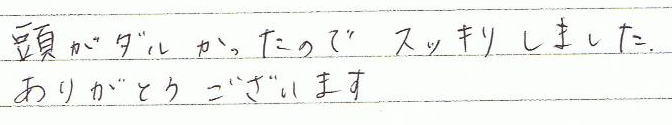 頭がダルかったので スッキリしました.
ありがとうございます